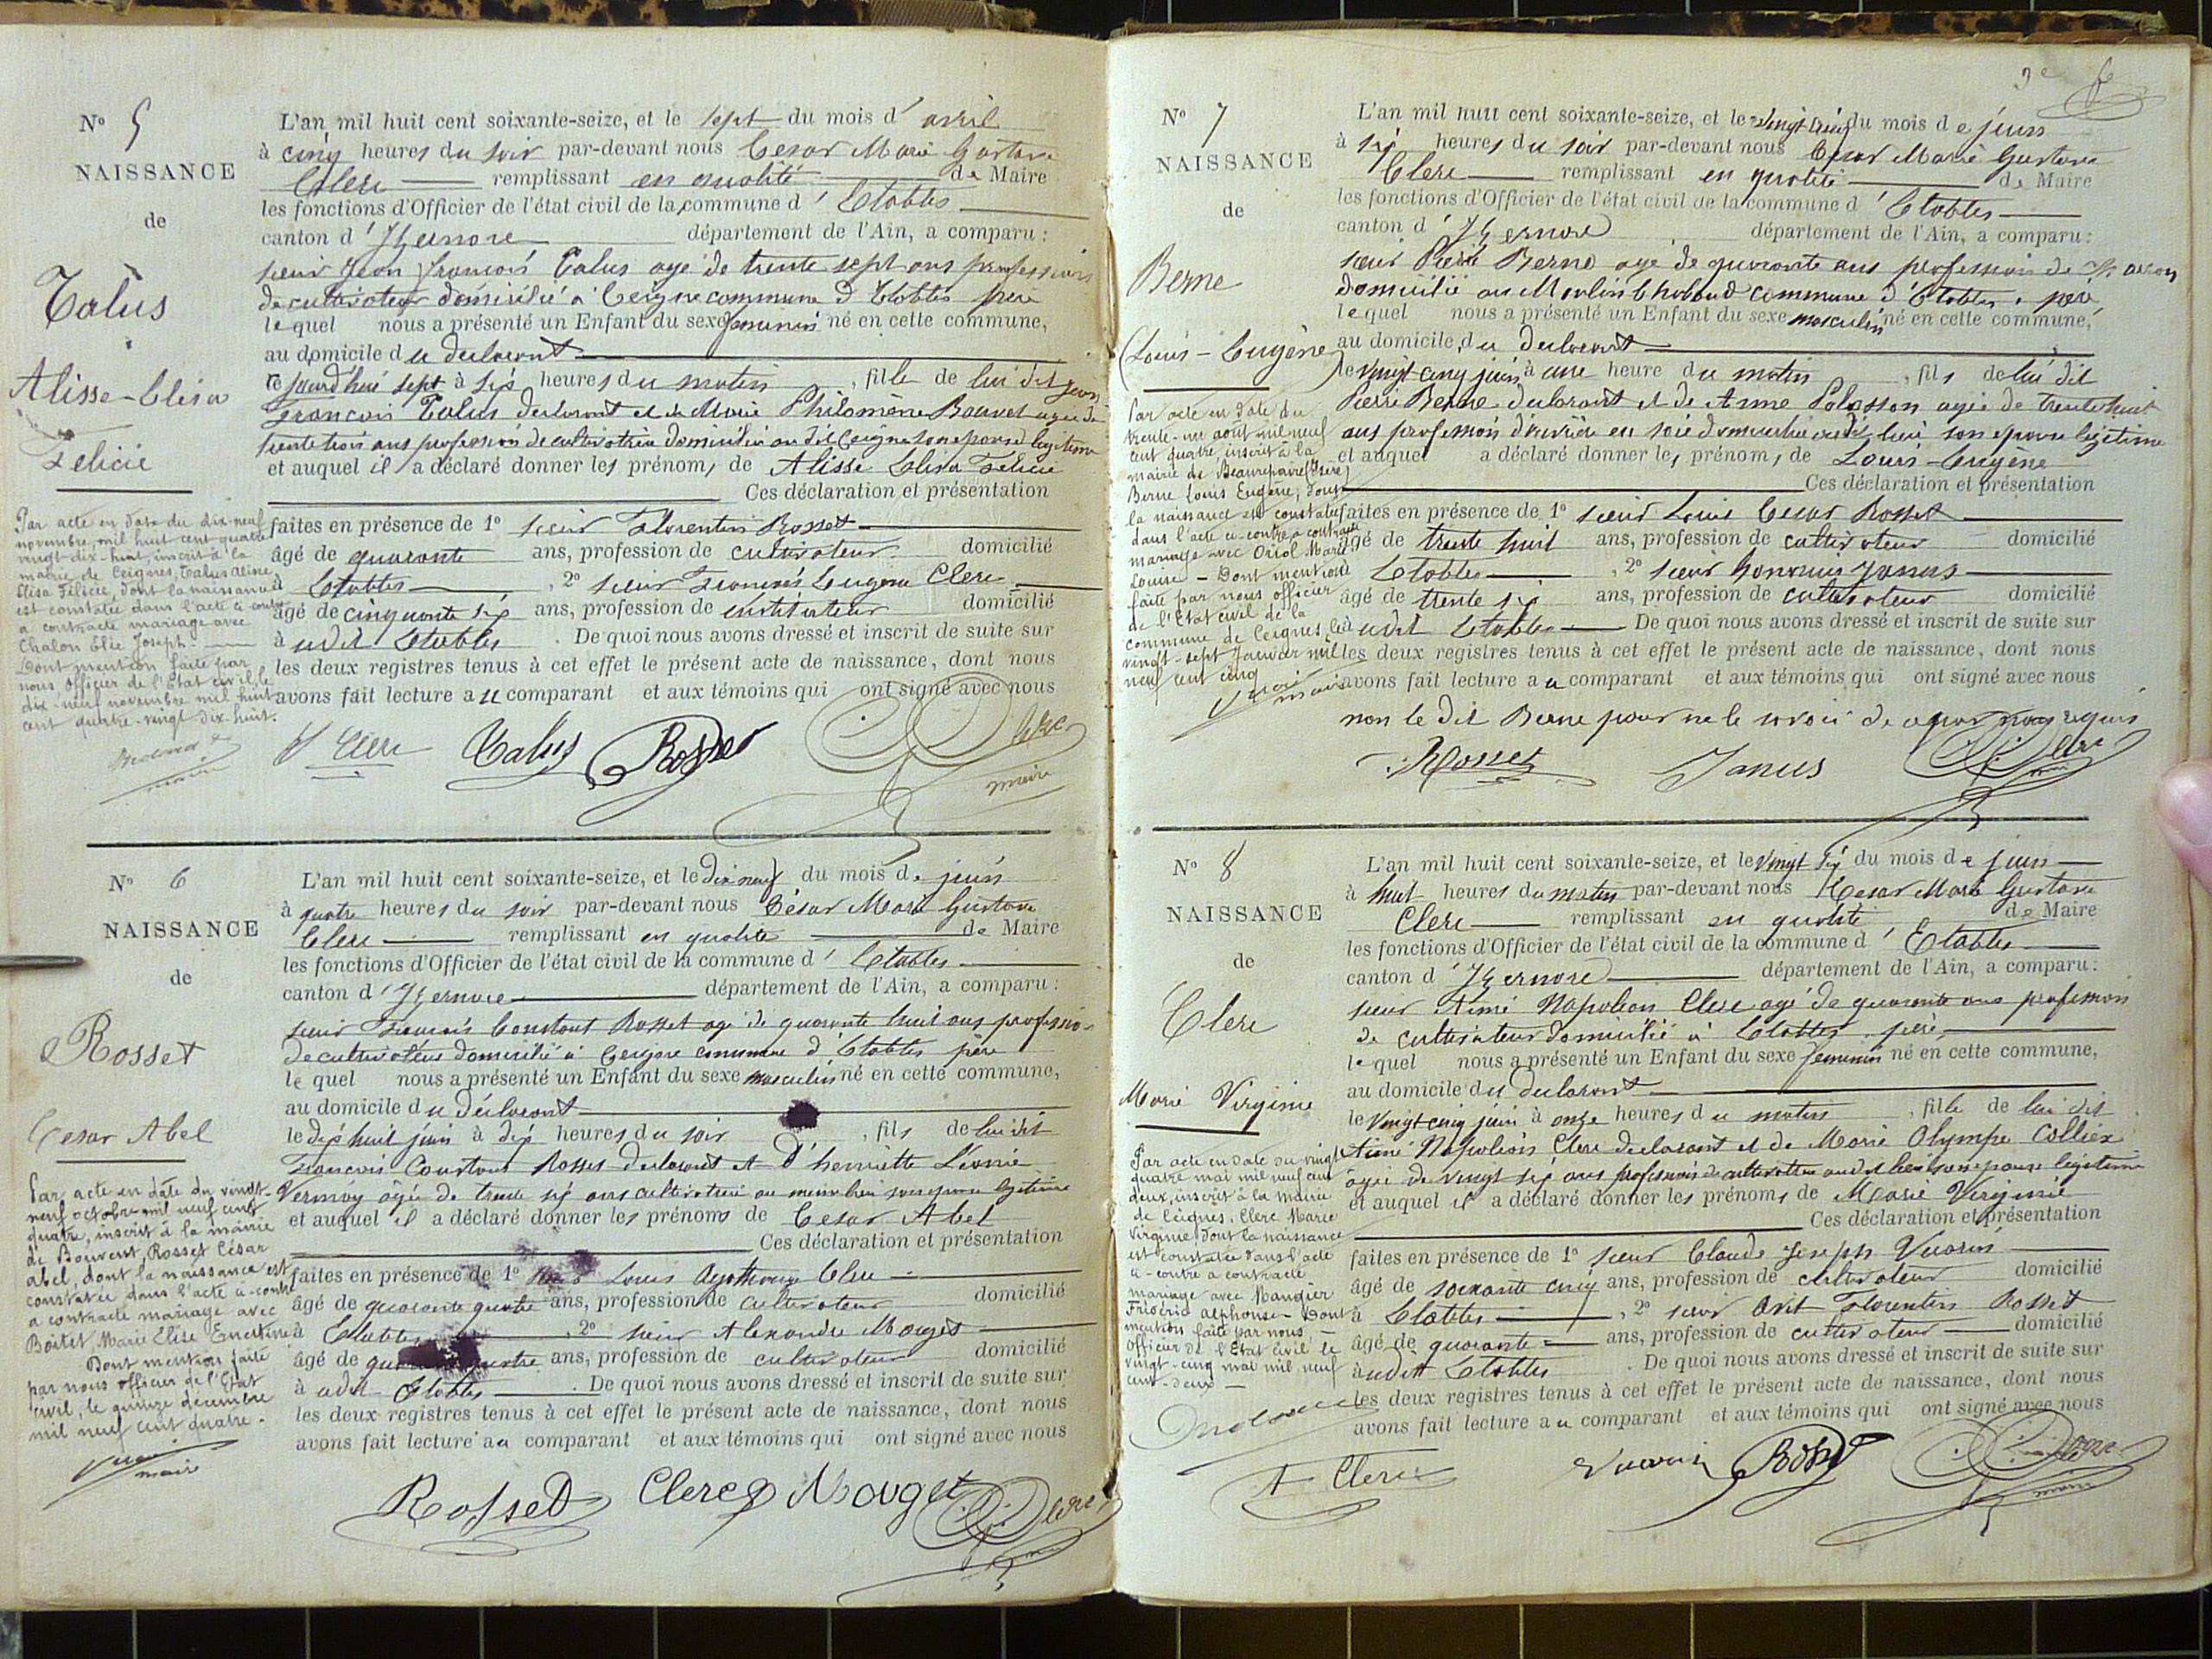 N° 5
NAISSANCE
de
Talus
Alisse-Elisa
Felicie
Par acte en date du dix-neuf
novembre, mil huit cent quatre
vingt-dix-huit, inscrit à la
mairie de Ceignes, Talus Aline
Elisa Félicie, dont la naissance
est constatée dans l'acte ci-contre
a contracté mariage avec
Chalon Elie Joseph.
Dont mention faite par
nous Officier de l'Etat civil, le
dix-neuf novembre mil huit
cent quatre-vingt dix-huit.
L'an mil huit cent soixante-seize, et le sept du mois d'avril
à cinq heures du soir par-devant nous Cesar Marie Gustave
Clerc remplissant en qualité de Maire
les fonctions d'Officier de l'état civil de la commune d'Etables
canton d'Izernore département de l'Ain, a comparu :
sieur Jean François Talus agé de trente sept ans profession
de cultivateur domicilié à Ceigne commune d'Etables père
lequel nous a présenté un Enfant du sexe feminin né en cette commune,
au domicile du declarant
ce jourd'hui sept à six heures du matin, fille de lui dit Jean
François Talus declarant et de Marie Philomène Bouvet agée de
trente trois ans profession de cultivatrice domiciliée au dit Ceigne son epouse legitime
et auquel il a déclaré donner les prénoms de Alisse Elisa Felicie
Ces déclaration et présentation
faites en présence de 1° sieur Florentin Rosset
âgé de quarante ans, profession de cultivateur domicilié
à Etables, 2° sieur François Eugene Clerc
âgé de cinquante six ans, profession de instituteur domicilié
à udit Etables. De quoi nous avons dressé et inscrit de suite sur
les deux registres tenus à cet effet le présent acte de naissance, dont nous
avons fait lecture au comparant et aux témoins qui ont signé avec nous
Clerc Talus Rosset Clerc
maire
N° 6
NAISSANCE
de
Rosset
Cesar Abel
Par acte en date du vingt-
neuf octobre mil neuf cent
quatre, inscrit à la mairie
de Bouvent, Rosset César
abel, dont la naissance est
constatée dans l'acte ci-contre
a contracté mariage avec
Boitet, Marie Elise Ernestine
Dont mention faite
par nous officier de l'Etat
civil, le quinze décembre
mil neuf cent quatre.
maire
L'an mil huit cent soixante-seize, et le dix neuf du mois de juin
à quatre heures du soir par-devant nous César Marie Gustave
Clerc remplissant en qualité de Maire
les fonctions d'Officier de l'état civil de la commune d'Etables
canton d'Izernore département de l'Ain, a comparu :
sieur François Constant Rosset agé de quarante huit ans profession
de cultivateur domicilié à Ceigne commune d'Etables père
lequel nous a présenté un Enfant du sexe masculin né en cette commune,
au domicile du déclarant
le dix huit juin à dix heures du soir, fils de lui dit
François Constant Rosset declarant et d'henriette Léonie
agée de trente six ans cultivatrice au meme lieu son epouse legitime
et auquel il a déclaré donner les prénoms de Cesar Abel
Ces déclaration et présentation
faites en présence de 1° sieur Louis Clerc
âgé de quarante quatre ans, profession de cultivateur domicilié
à Etables, 2° sieur Alexandre Mouget
âgé de quarante quatre ans, profession de cultivateur domicilié
à udit Etables. De quoi nous avons dressé et inscrit de suite sur
les deux registres tenus à cet effet le présent acte de naissance, dont nous
avons fait lecture au comparant et aux témoins qui ont signé avec nous
Rosset Clerc Mouget Clerc
N° 7
NAISSANCE
de
Berne
Louis-Eugène
Par acte en date du
trente-un août mil neuf
cent quatre, inscrit à la
mairie de Beaurepaire (Isère)
Berne Louis Eugène, dont
la naissance est constatée
dans l'acte ci-contre a contracté
mariage avec Oriol Marie
Louise - Dont mention
faite par nous officier
de l'Etat civil de la
commune de Ceignes, le
vingt-sept Janvier mil
neuf cent cinq
maire
L'an mil huit cent soixante-seize, et le vingt cinq du mois de juin
à six heures du soir par-devant nous César Marie Gustave
Clerc remplissant en qualité de Maire
les fonctions d'Officier de l'état civil de la commune d'Etables
canton d'Izernore département de l'Ain, a comparu :
sieur Pierre Berne agé de quarante ans profession de Maçon
domicilié au Moulin Chabaud commune d'Etables, père
lequel nous a présenté un Enfant du sexe masculin né en cette commune,
au domicile du declarant
le vingt cinq juin à une heure du matin, fils de lui dit
Pierre Berne declarant et de Anne Polosson agée de trente huit
ans profession d'ouvrière en soie domiciliée audit lieu son epouse legitime
et auquel a déclaré donner les prénoms de Louis-Eugène
Ces déclaration et présentation
faites en présence de 1° sieur Louis Cesar Rosset
âgé de trente huit ans, profession de cultivateur domicilié
à Etables, 2° sieur Janus
âgé de trente six ans, profession de cultivateur domicilié
à udit Etables De quoi nous avons dressé et inscrit de suite sur
les deux registres tenus à cet effet le présent acte de naissance, dont nous
avons fait lecture au comparant et aux témoins qui ont signé avec nous
non le dit Berne pour ne le savoir de ce par nous requis
Rosset Janus Clerc
N° 8
NAISSANCE
de
Clerc
Marie Virginie
Par acte en date du vingt
quatre mai mil neuf cent
deux, inscrit à la mairie
de Ceignes, Clerc Marie
Virginie, dont la naissance
est constatée dans l'acte
ci-contre a contracté
mariage avec Maugier
Fréderic alphonse - Dont
mention faite par nous
officier de l'Etat civil le
vingt-cinq mai mil neuf
cent-deux
L'an mil huit cent soixante-seize, et le vingt six du mois de juin
à huit heures du matin par-devant nous Cesar Marie Gustave
Clerc remplissant en qualité de Maire
les fonctions d'Officier de l'état civil de la commune d'Etables
canton d'Izernore département de l'Ain, a comparu :
sieur Aimé Napoléon Clerc agé de quarante ans profession
de cultivateur domicilié à Etables père
lequel nous a présenté un Enfant du sexe feminin né en cette commune,
au domicile du declarant
le vingt cinq juin à onze heures du matin, fille de lui dit
Aimé Napoléon Clerc declarant et de Marie Olympe Collier
agée de vingt six ans profession de cultivatrice audit lieu son epouse legitime
et auquel il a déclaré donner les prénoms de Marie Virginie
Ces déclaration et présentation
faites en présence de 1° sieur Claude Joseph Vuarin
âgé de soixante cinq ans, profession de cultivateur domicilié
à Etables, 2° sieur Florentin Rosset
âgé de quarante ans, profession de cultivateur domicilié
à udit Etables. De quoi nous avons dressé et inscrit de suite sur
les deux registres tenus à cet effet le présent acte de naissance, dont nous
avons fait lecture au comparant et aux témoins qui ont signé avec nous
A Clerc Vuarin Rosset Clerc
maire